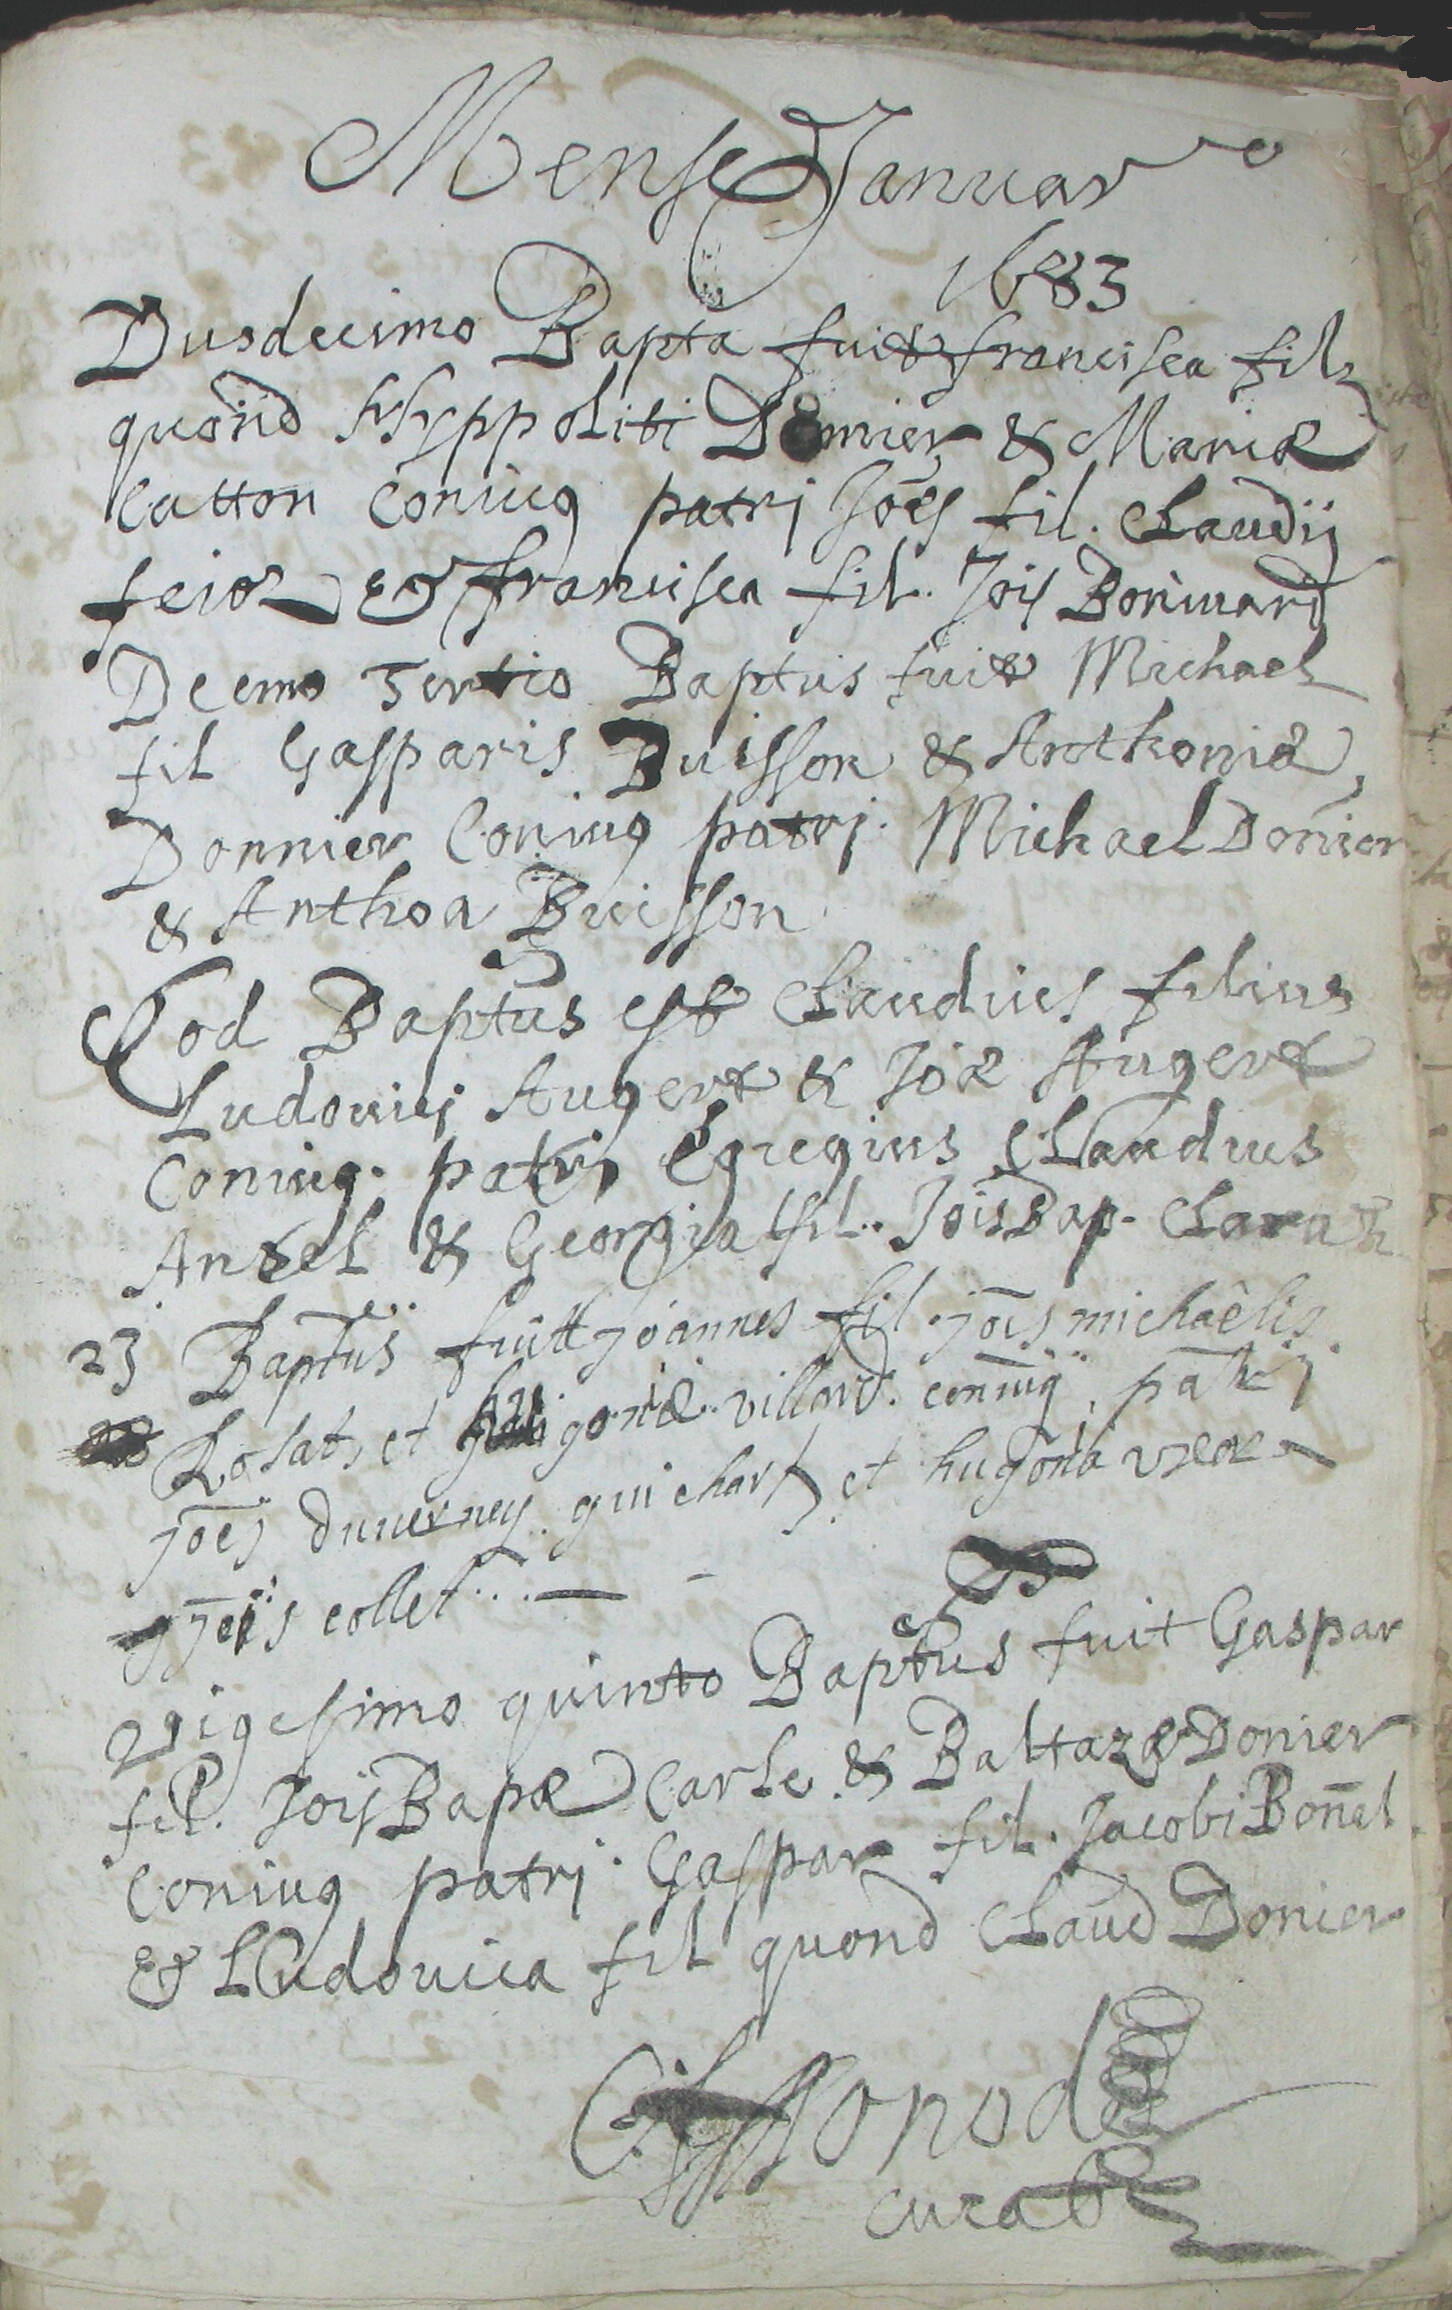 Mense Januar°
1683
Dusdecimo Bapta fuit francisca fil
quond hyppoliti Donnier & Mariæ
Catton Coniug patrj Joes fil. Claudij
feioz & francisca fil. Jois Boniuard
Decimo Tertio Baptus fuit Michael
fil Gasparis Buisson & Anthoniæ
Donnier Coniug patrj. Michael Donier
& Anthoa Buisson
Eod Baptus est Claudius filius
Ludouicj Augert & Joæ Augert
Coniug. patrj Egregius Claudius
Ansel & Georgia fil. Jois Bap. Clara
23 Baptus fuitt joannes fil. jois michaelis
Rosat, et gonæ villard. coniug patrj
joes duuerney. guichart, et hugona vxor
jois collet...
Vigesimo quinto Baptus fuit Gaspar
fil. Jois Bapæ Carle & Baltazæ Donier
Coniug patrj. Gaspar fil. Jacobi Bonnel
& Ludouica fil quond Claud Donier
Monod
curat